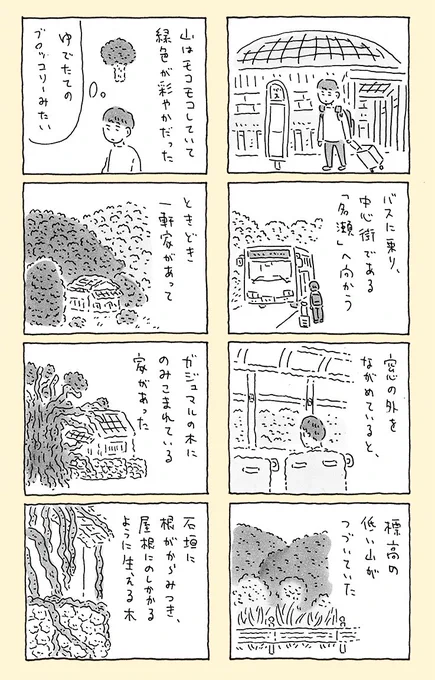 バスに乗り、
中心街である
「名瀬」へ向かう
窓の外を
ながめていると、
標高の
低い山が
つづいていた
山はモコモコしていて
緑色が彩やかだった
ゆでたての
ブロッコリーみたい
ときどき
一軒家があって
ガジュマルの木に
のみこまれている
家があった
石垣に
根がからみつき、
屋根にのしかかる
ように生える木